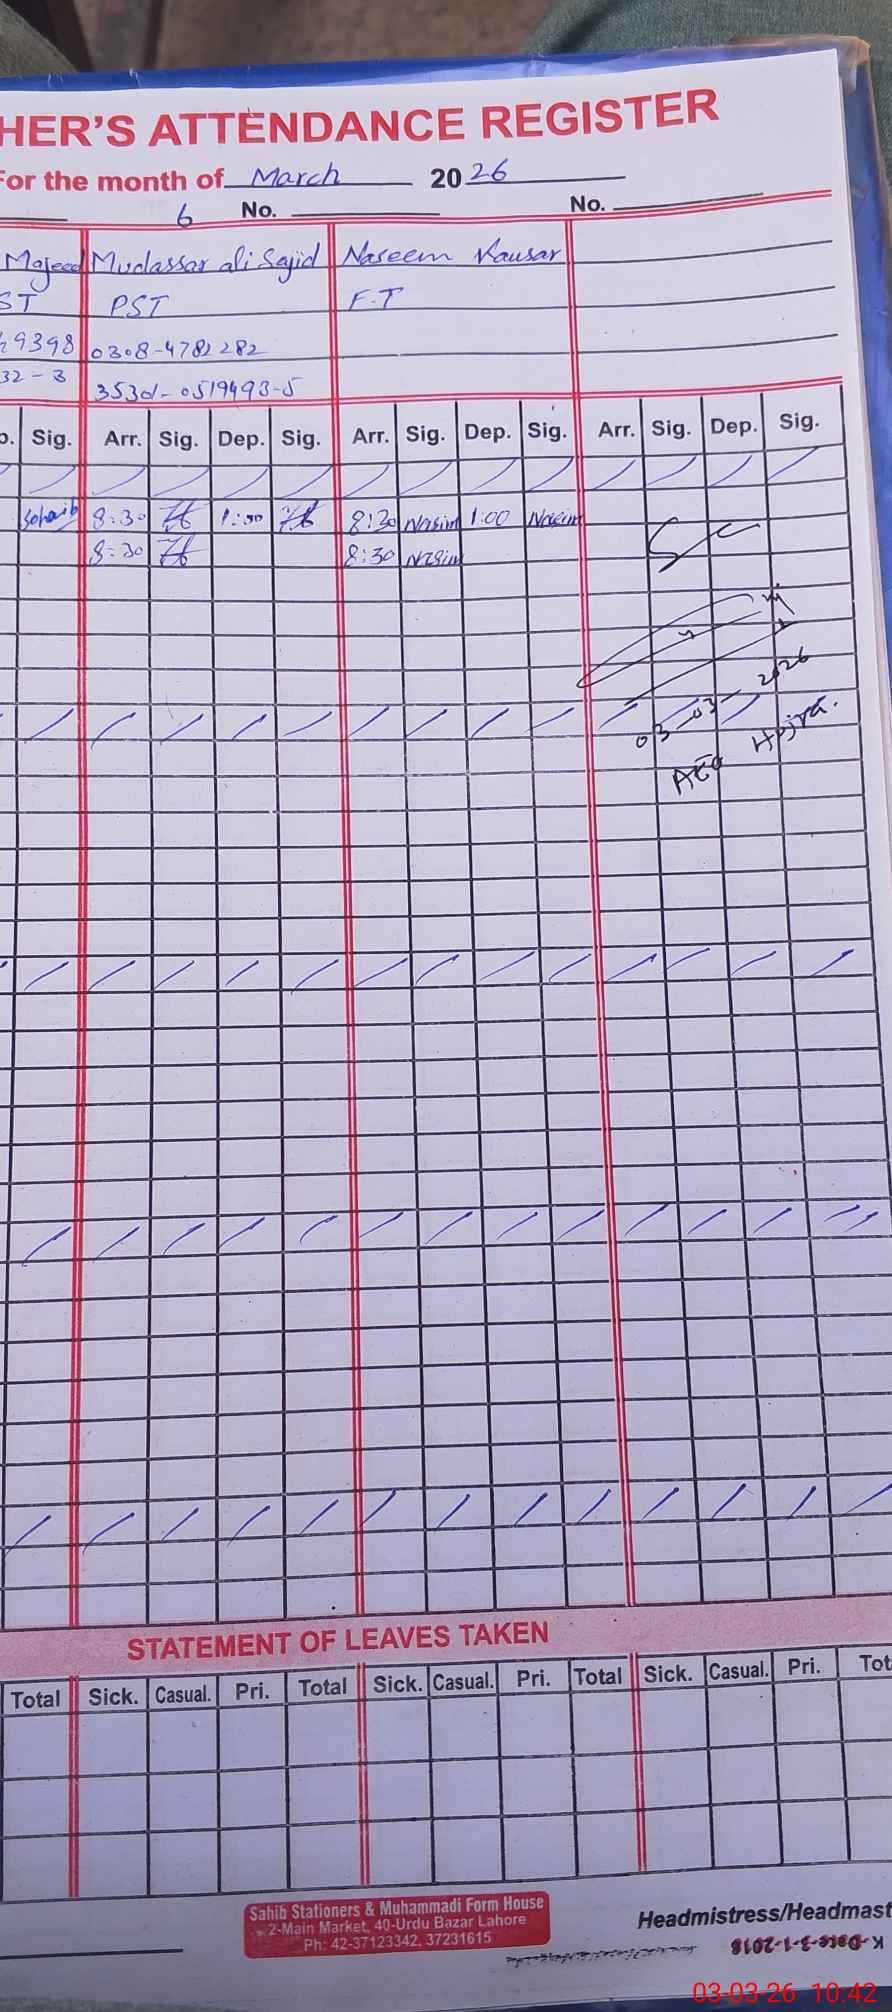 HER'S ATTENDANCE REGISTER
For the month of March 2026
6 No. No.
Majeed Mudassar ali Sajid Naseem Kausar
ST PST F.T
49398 0308-4782282
32-3 35301-0519493-5
Sig. Arr. Sig. Dep. Sig. Arr. Sig. Dep. Sig. Arr. Sig. Dep. Sig.
Sohaib 8:30 1:00 8:30 Nasim 1:00 Nasim
8:30 8:30 Nasim
03-03-2026
AEO Hajra.
STATEMENT OF LEAVES TAKEN
Total Sick. Casual. Pri. Total Sick. Casual. Pri. Total Sick. Casual. Pri. Tot
Sahib Stationers & Muhammadi Form House
2-Main Market, 40-Urdu Bazar Lahore
Ph: 42-37123342, 37231615
Headmistress/Headmast
K Date-3-1-2018
03-03-26 10:42